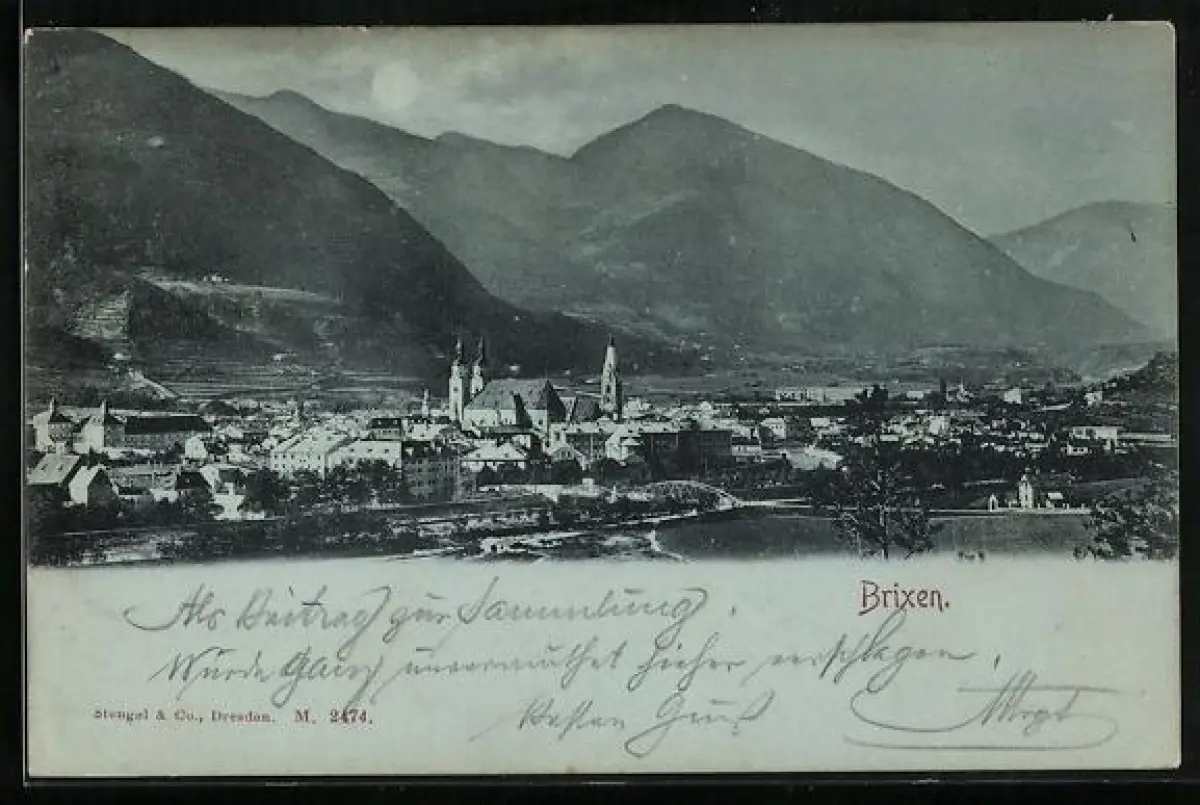 Brixen.
Als Beitrag zur Sammlung.
Würde Ganz unvermuthet hieher verschlagen,
Besten Gruß
Stengel & Co., Dresden. M. 2474.